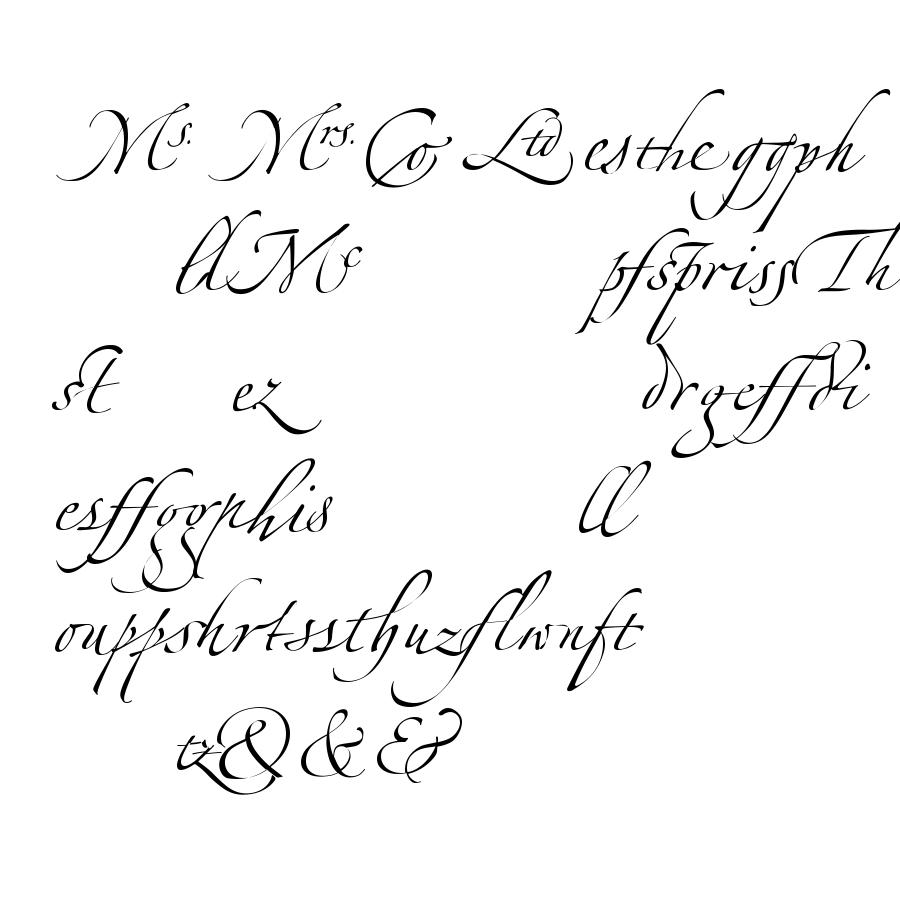 Ms. Mrs. Co Ltd es the gg ph
ld Mc pf sp ri ss Th
st ez dr ge ff di
es ff gg ph is ll
ou pp sh rt ss th uz fl wn ft
tz & & &